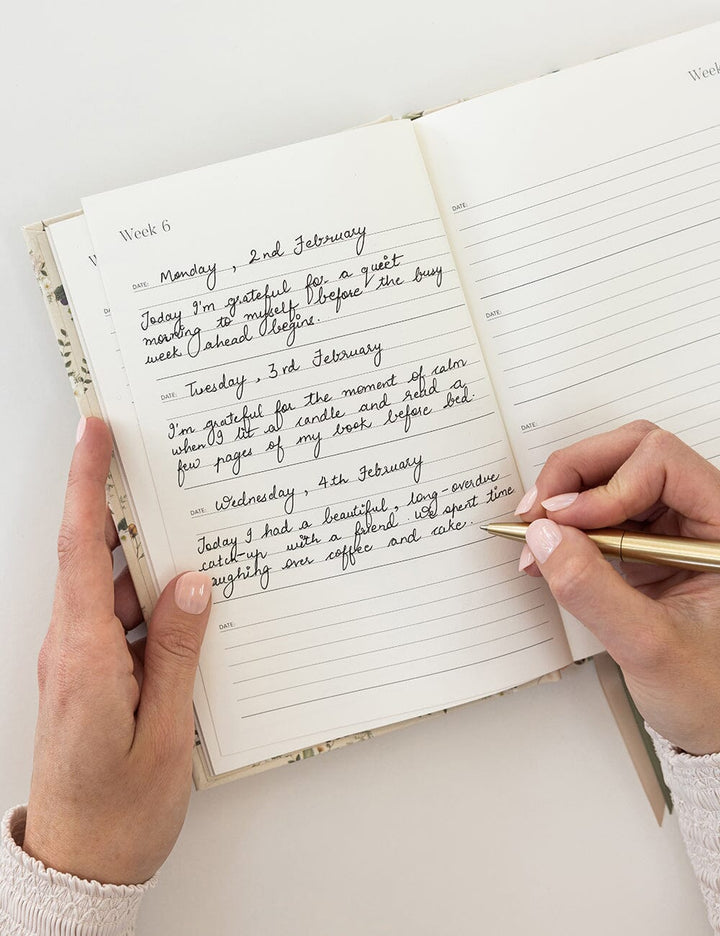 Week 6
DATE: Monday, 2nd February
Today I'm grateful for a quiet
morning to myself before the busy
week ahead begins.
DATE: Tuesday, 3rd February
I'm grateful for the moment of calm
when I lit a candle and read a
few pages of my book before bed.
DATE: Wednesday, 4th February
Today I had a beautiful, long-overdue
catch-up with a friend. We spent time
laughing over coffee and cake.
DATE:
Week
DATE:
DATE:
DATE: